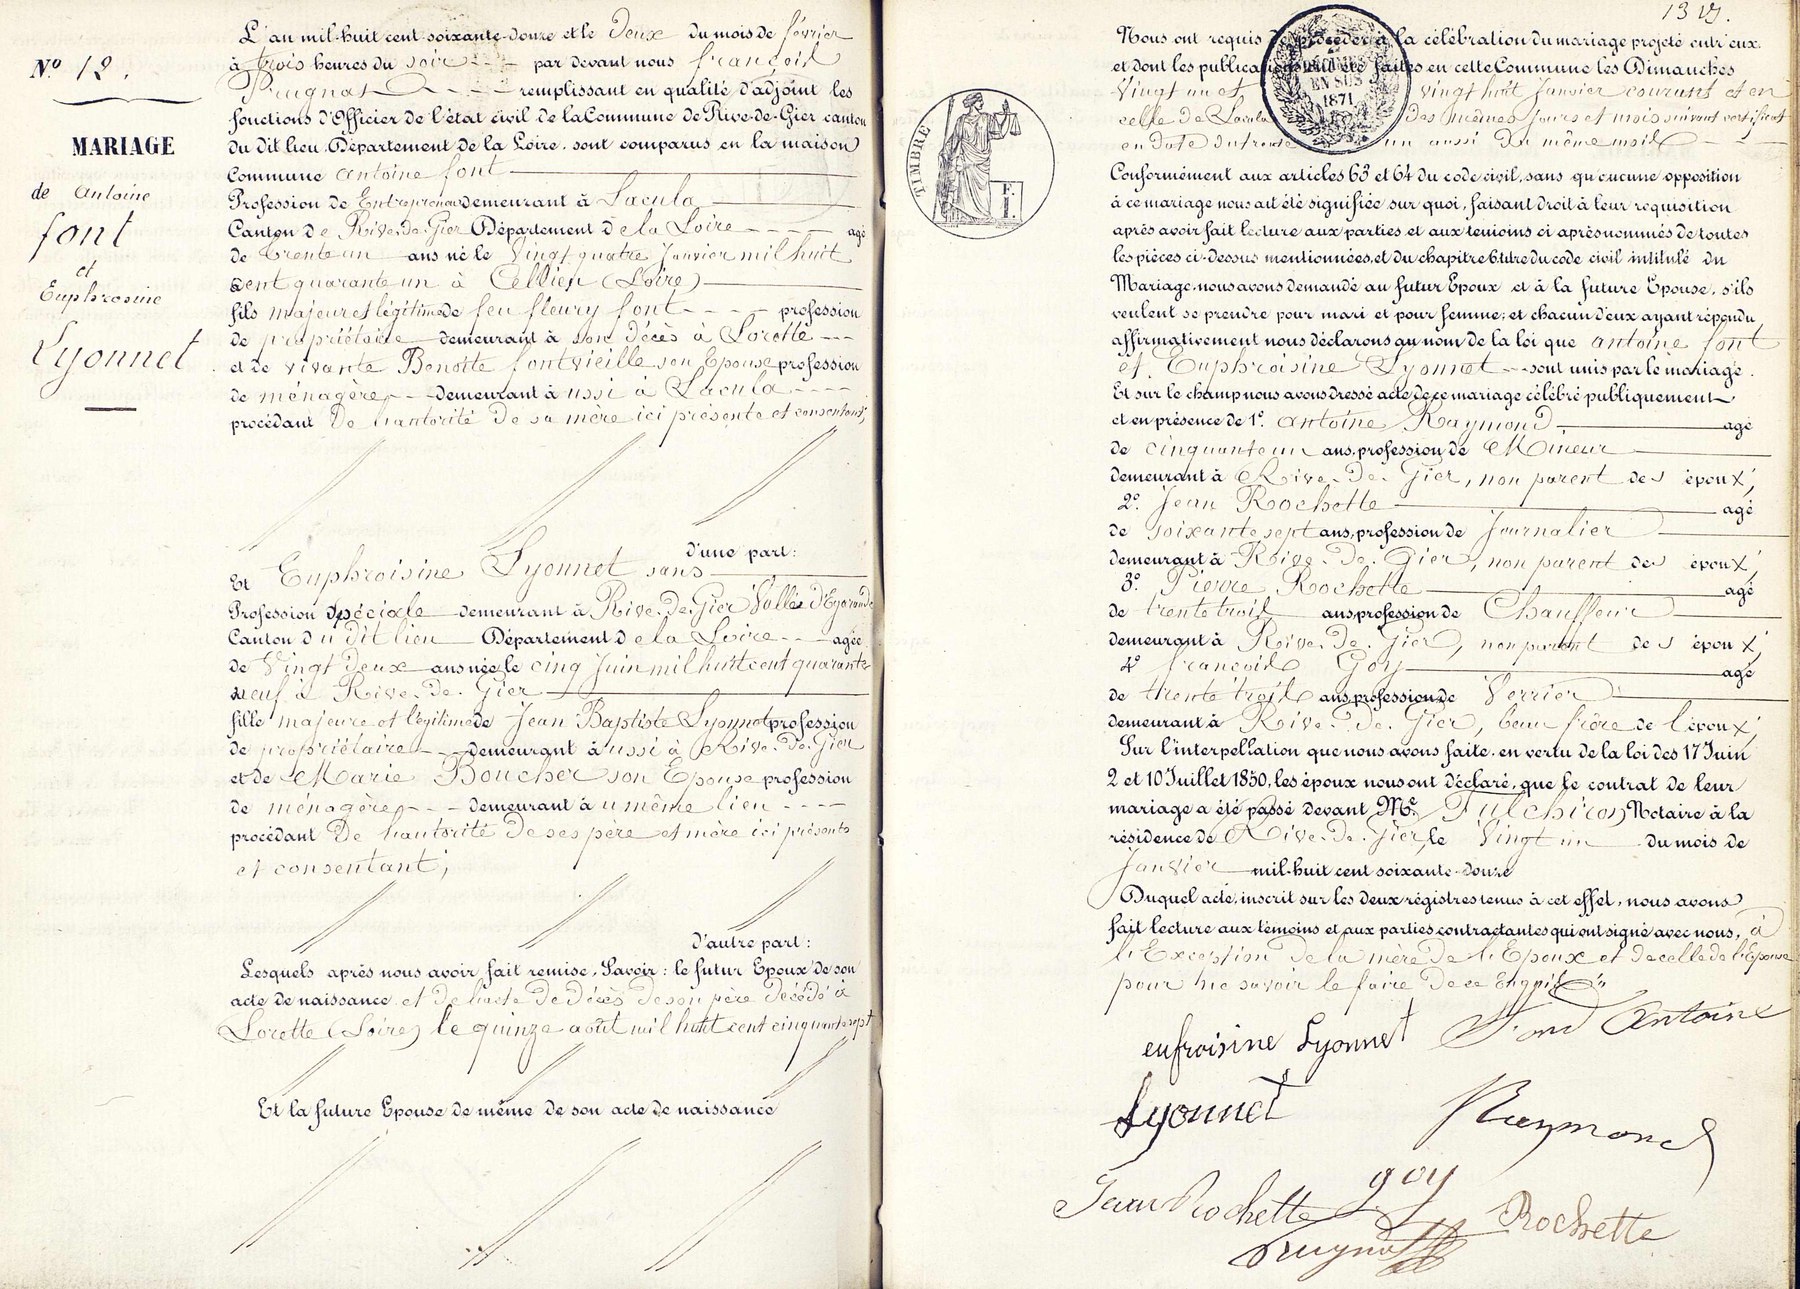 N.º 12.
MARIAGE
de Antoine
font
et
Euphrosine
Lyonnet
L'an mil-huit cent-soixante-douze et le Deux du mois de février
à trois heures du soir par devant nous françois
remplissant en qualité d'adjoint les
fonctions d'Officier de l'état civil de la Commune de Rive-de-Gier canton
du dit lieu, Département de la Loire, sont comparus en la maison
Commune antoine font
Profession de Entrepreneur demeurant à Lacula
Canton de Rive-de-Gier Département de la Loire agé
de trente un ans né le Vingt quatre Janvier mil huit
cent quarante un à Cellieu (Loire)
fils majeur et légitime de feu fleury font profession
de propriétaire demeurant à son décès à Lorette
et de vivante Benoite fontvieille son Epouse profession
de ménagère demeurant à ussi à Lacula
procédant De l'autorité de sa mère ici présente et consentant;
d'une part:
Et Euphroisine Lyonnet sans
Profession spéciale demeurant à Rive-De-Gier Vallée d'Egarande
Canton du dit lieu Département de la Loire agée
de Vingt Deux ans née le cinq Juin mil huit cent quarante
neuf à Rive-De-Gier
fille majeure et légitime de Jean Baptiste Lyonnet profession
de propriétaire demeurant à ussi à Rive-De-Gier
et de Marie Boucher son Epouse profession
de ménagère demeurant à u même lieu
procédant De l'autorité De ses père et mère ici présents
et consentant;
d'autre part:
Lesquels après nous avoir fait remise, Savoir: le futur Epoux de son
acte de naissance et De l'acte De Décès De son père Décédé à
Lorette (Loire) le quinze août mil huit cent cinquante sept
Et la future Epouse de même de son acte de naissance
13
TIMBRE
F. I.
EN SUS
1871
Nous ont requis de procéder à la célébration du mariage projeté entr'eux.
et dont les publications ont été faites en cette Commune les Dimanches
Vingt un et vingt huit Janvier courant et en
celle de Lacula des mêmes jours et mois suivant certificat
en date du trente un aussi Du même mois
Conformément aux articles 63 et 64 du code civil, sans qu'aucune opposition
à ce mariage nous ait été signifiée sur quoi, faisant droit à leur requisition
après avoir fait lecture aux parties et aux temoins ci après nommés de toutes
les pièces ci-dessus mentionnées, et du chapitre 6 titre du code civil intitulé du
Mariage, nous avons demandé au futur Epoux et à la future Epouse, s'ils
veulent se prendre pour mari et pour femme; et chacun d'eux ayant répondu
affirmativement nous déclarons au nom de la loi que antoine font
et Euphroisine Lyonnet sont unis par le mariage.
Et sur le champ nous avons dressé acte de ce mariage célébré publiquement
et en présence de 1.º Antoine Raymond agé
de cinquante un ans, profession de Mineur
demeurant à Rive-De-Gier, non parent des époux;
2.º Jean Rochette agé
de soixante sept ans, profession de Journalier
demeurant à Rive-De-Gier, non parent des époux;
3.º Pierre Rochette agé
de trente trois ans, profession de Chauffeur
demeurant à Rive-De-Gier, non parent des époux;
4.º françois Goy agé
de trente trois ans, profession de Verrier
demeurant à Rive-De-Gier, beau frère de l'époux;
Sur l'interpellation que nous avons faite, en vertu de la loi des 17 Juin
2 et 10 Juillet 1850, les époux nous ont déclaré, que le contrat de leur
mariage a été passé devant M.e Fulchiron Notaire à la
résidence de Rive-De-Gier, le Vingt un du mois de
Janvier mil-huit cent soixante-douze
Duquel acte, inscrit sur les deux régistres tenus à cet effet, nous avons
fait lecture aux témoins et aux parties contractantes qui ont signé avec nous, à
l'Exception De la mère de l'Epoux et de celle de l'Epouse
pour ne savoir le faire De ce Enquis
eufroisine Lyonnet Font Antoine
Lyonnet Raymond
Jean Rochette goy Rochette